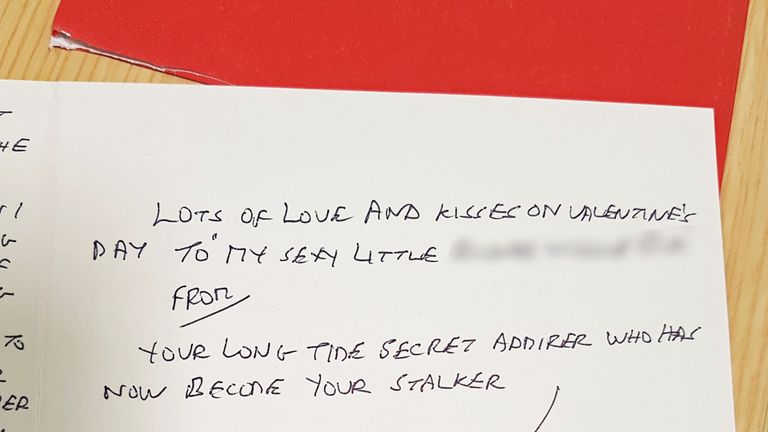 HE
TO
ER
LOTS OF LOVE AND KISSES ON VALENTINE'S
DAY TO MY SEXY LITTLE
FROM
YOUR LONG TIME SECRET ADMIRER WHO HAS
NOW BECOME YOUR STALKER